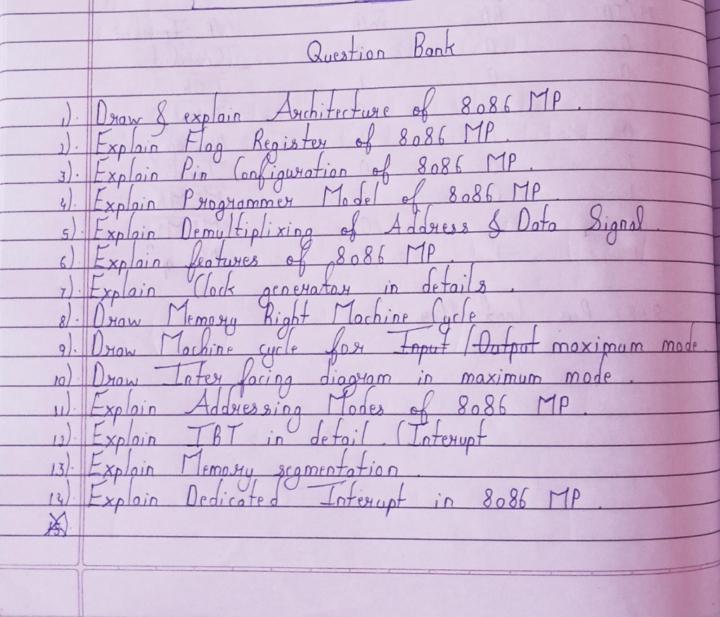 Question Bank
1). Draw & explain Architecture of 8086 MP.
2). Explain Flag Register of 8086 MP.
3). Explain Pin Configuration of 8086 MP.
4). Explain Programmer Model of 8086 MP
5). Explain Demultiplixing of Address & Data Signal
6). Explain features of 8086 MP.
7). Explain Clock generator in details.
8). Draw Memory Right Machine Cycle
9). Draw Machine cycle for Input / Output maximum mode
10). Draw Inter facing diagram in maximum mode.
11). Explain Addressing Modes of 8086 MP.
12). Explain IBT in detail. (Interupt
13). Explain Memory segmentation.
14). Explain Dedicated Interupt in 8086 MP.